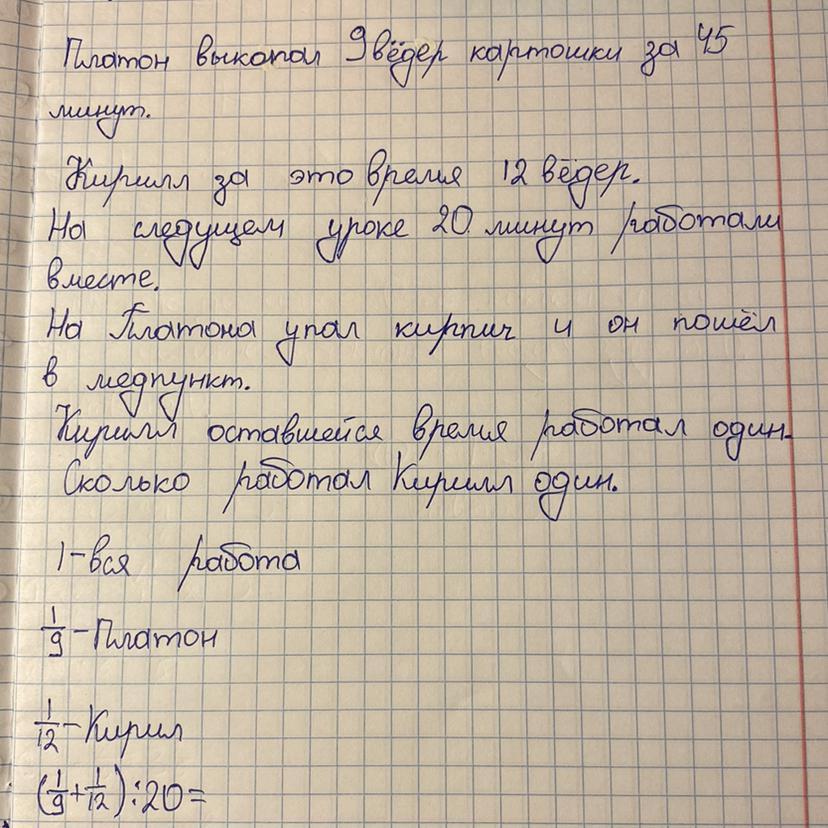 Платон выкопал 9 вёдер картошки за 45
минут.
Кирилл за это время 12 вёдер.
На следущем уроке 20 минут работали
вместе.
На Платона упал кирпич и он пошёл
в медпункт.
Кирилл оставшейся время работал один.
Сколько работал Кирилл один.
1-вся работа
1/9 - Платон
1/12 - Кирил
(1/9 + 1/12) : 20 =